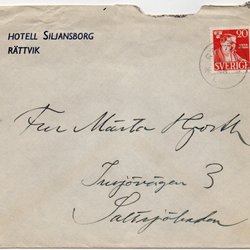 HOTELL SILJANSBORG
RÄTTVIK
20
SVERIGE
Fru Märta Hjorth
Insjövägen 3
Saltsjöbaden